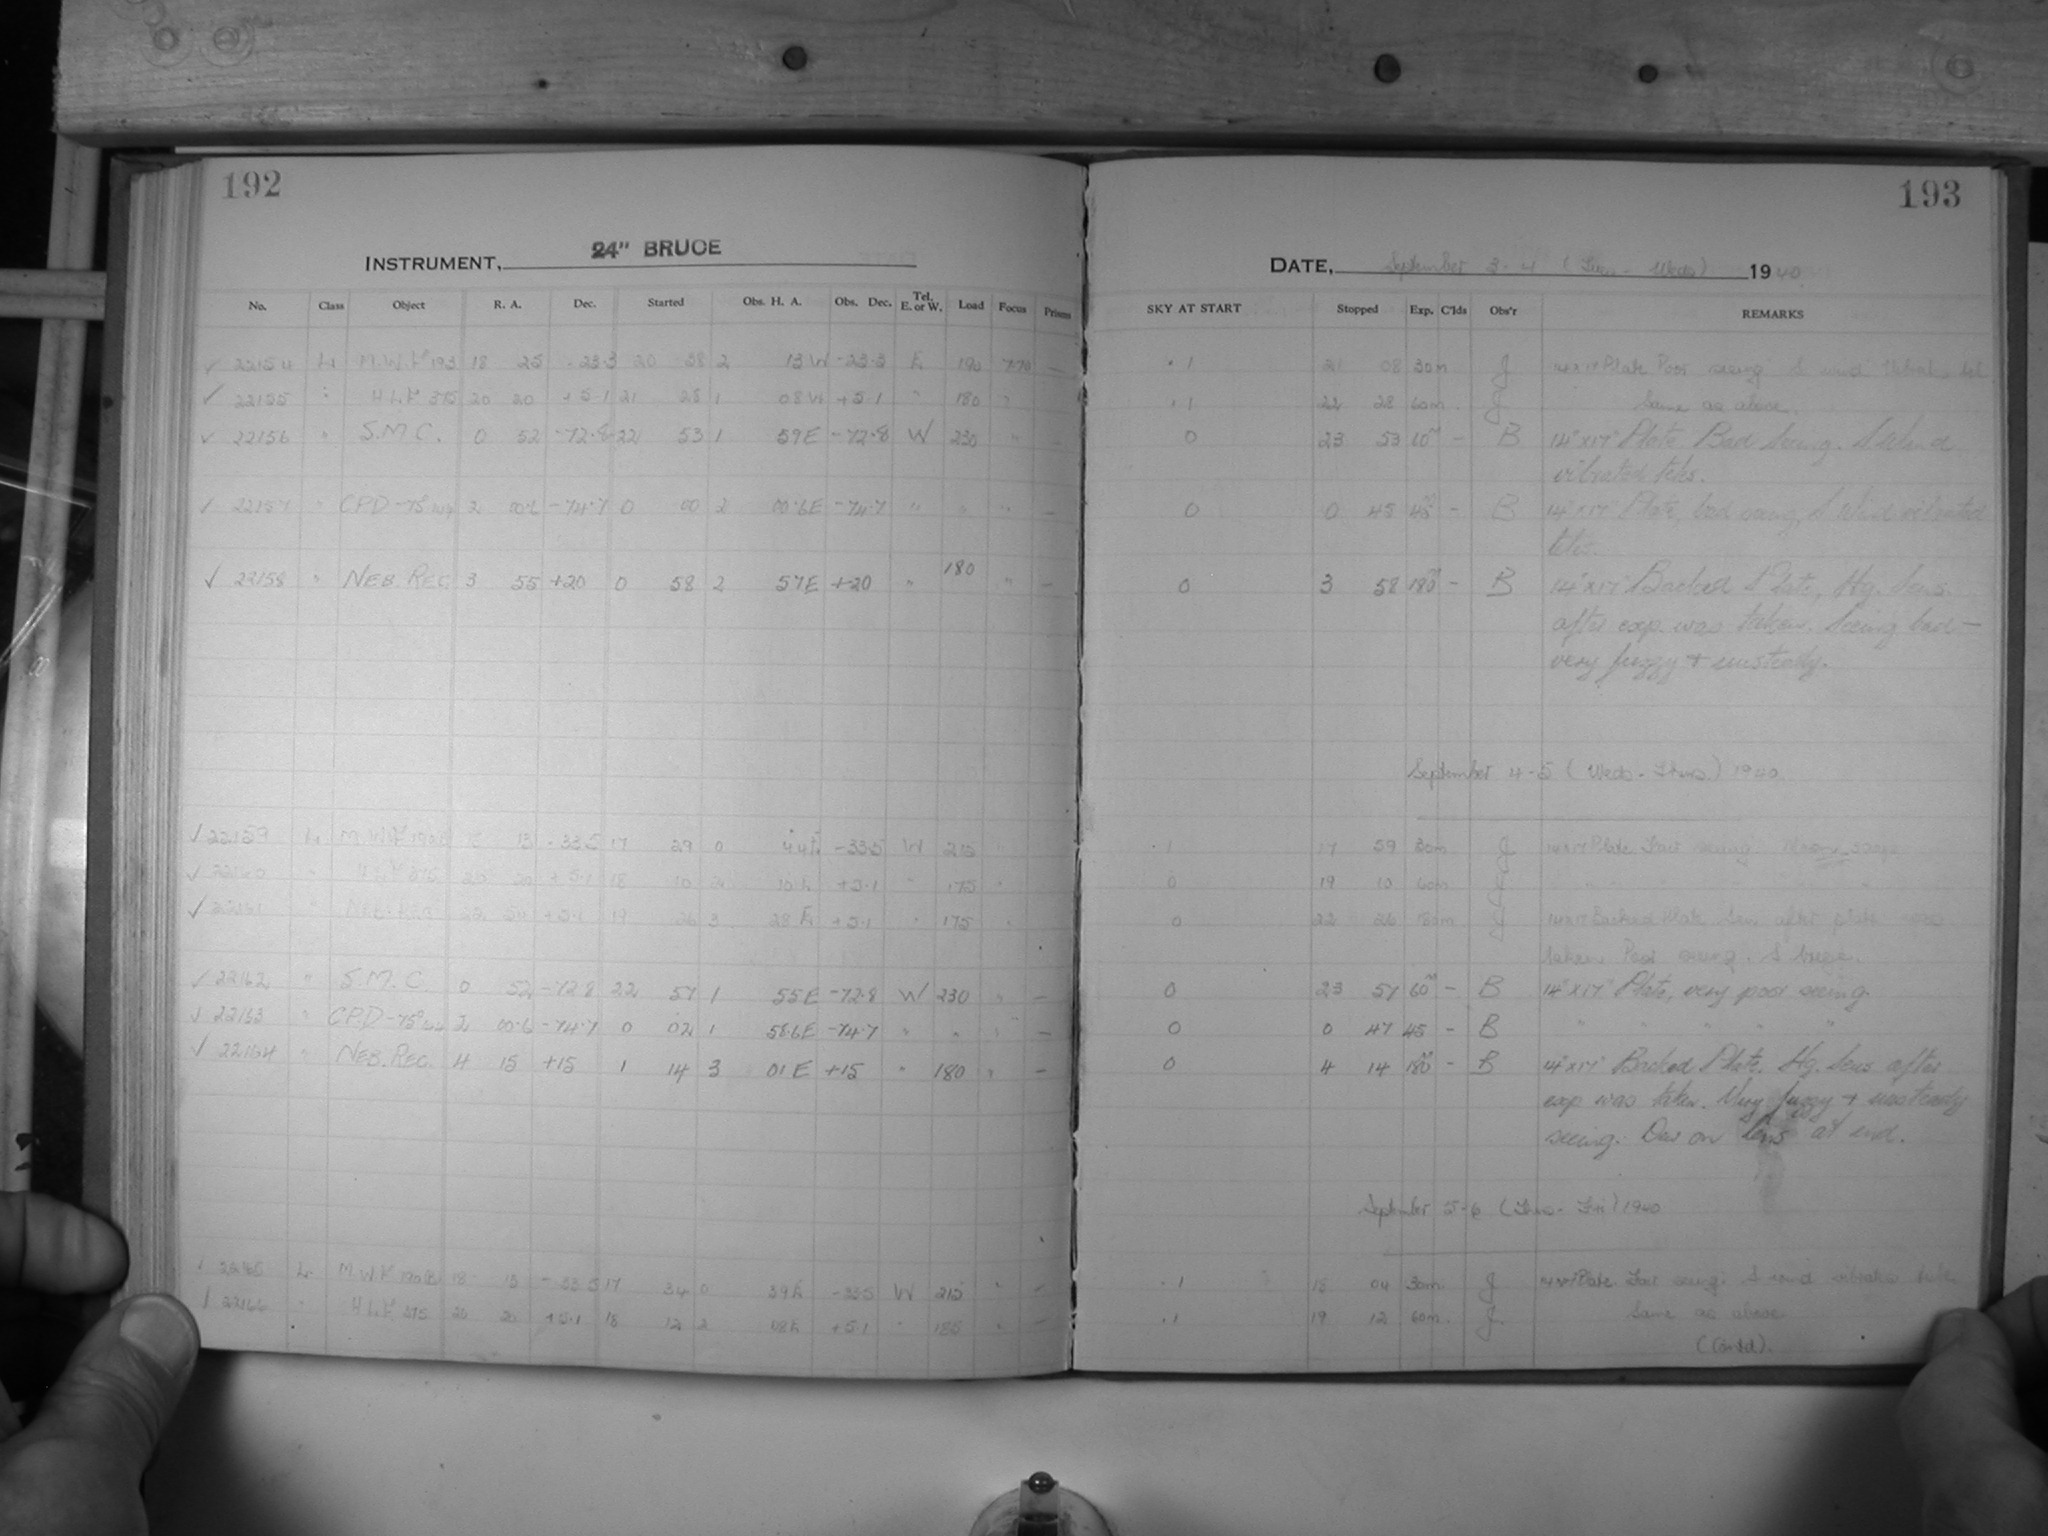 192
INSTRUMENT, 24" BRUCE
No. Class Object R. A. Dec. Started Obs. H. A. Obs. Dec. Tel. E. or W. Load Focus Prisms
✓ 22154 L M.W.F 193 18 25 -23.3 20 38 2 13W -23.3 E 190 7.70 –
✓ 22155 " H.L.F 375 20 20 +5.1 21 28 1 08W +5.1 " 180 "
✓ 22156 " S.M.C. 0 52 -72.8 22 53 1 59E -72.8 W 230 " –
✓ 22157 " CPD -75° 2 00.6 -74.7 0 00 2 00.6E -74.7 " " " –
✓ 22158 " NEB. REG. 3 55 +20 0 58 2 57E +20 " 180 " –
✓ 22159 L M.W.F 190B 18 13 -33.5 17 29 0 44E -33.5 W 215
✓ 22160 " H.L.F 375 20 20 +5.1 18 10 2 10E +5.1 " 175 "
✓ 22161 " NEB. REG. 22 54 +5.1 19 26 3 28E +5.1 " 175 "
✓ 22162 " S.M.C. 0 52 -72.8 22 57 1 55E -72.8 W 230 " –
✓ 22163 " CPD -75° 2 00.6 -74.7 0 02 1 58.6E -74.7 " " " –
✓ 22164 " NEB. REG. 4 15 +15 1 14 3 01E +15 " 180 " –
✓ 22165 L M.W.F 190B 18 13 -33.5 17 34 0 39E -33.5 W 215 " –
✓ 22166 " H.L.F 375 20 20 +5.1 18 12 2 08E +5.1 " 185 " –
193
DATE, September 3-4 (Tues - Weds) 1940
SKY AT START Stopped Exp. C'lds Obs'r REMARKS
.1 21 08 30m J 14x17 Plate Poor seeing S wind
.1 22 28 60m J Same as above.
0 23 53 60m – B 14"x17" Plate. Bad Seeing. S Wind
vibrated teles.
0 0 45 45m – B 14"x17" Plate, bad seeing, S Wind vibrated
teles.
0 3 58 180m – B 14"x17" Backed Plate, Hg. Sens.
after exp. was taken. Seeing bad –
very fuzzy + unsteady.
September 4-5 (Weds - Thurs.) 1940
.1 17 59 30m J 14x17 Plate Fair seeing. Moon
0 19 10 60m J " "
0 22 26 180m J 14x17 Backed Plate Sen. after plate was
taken Poor seeing. S breeze.
0 23 57 60m – B 14"x17" Plate, very poor seeing.
0 0 47 45 – B " " " " "
0 4 14 180m – B 14"x17" Backed Plate, Hg. Sens after
exp was taken. Very fuzzy + unsteady
seeing. Dew on lens at end.
September 5-6 (Thurs - Fri) 1940
.1 18 04 30m J 14x17 Plate. Fair seeing. S wind vibrates tele.
.1 19 12 60m. J. Same as above
(Contd).